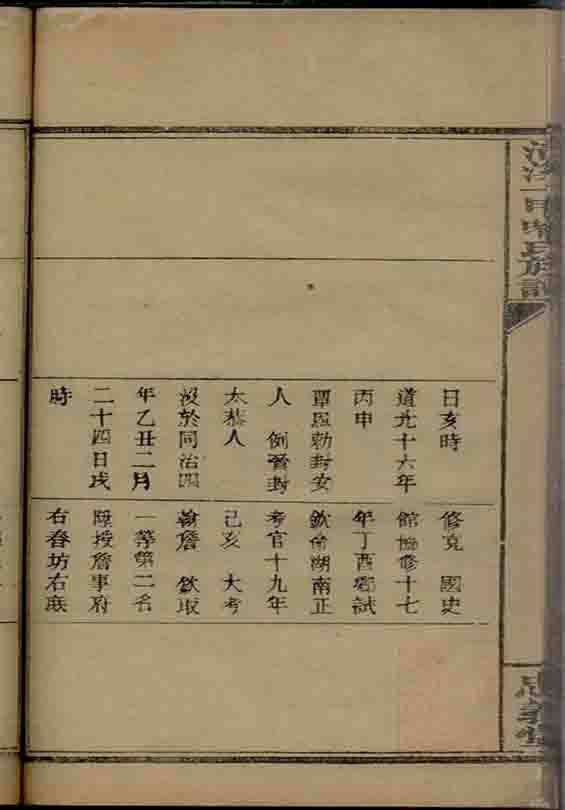 日亥時
道光十六年
丙申
覃恩勅封安
人　例晉封
太恭人
歿於同治四
年乙丑二月
二十四日戌
時
修竟　國史
館協修十七
年丁酉鄉試
欽命湖南正
考官十九年
己亥　大考
翰詹　欽取
一等第二名
陞授詹事府
右春坊右庶
氏族譜
忠義堂